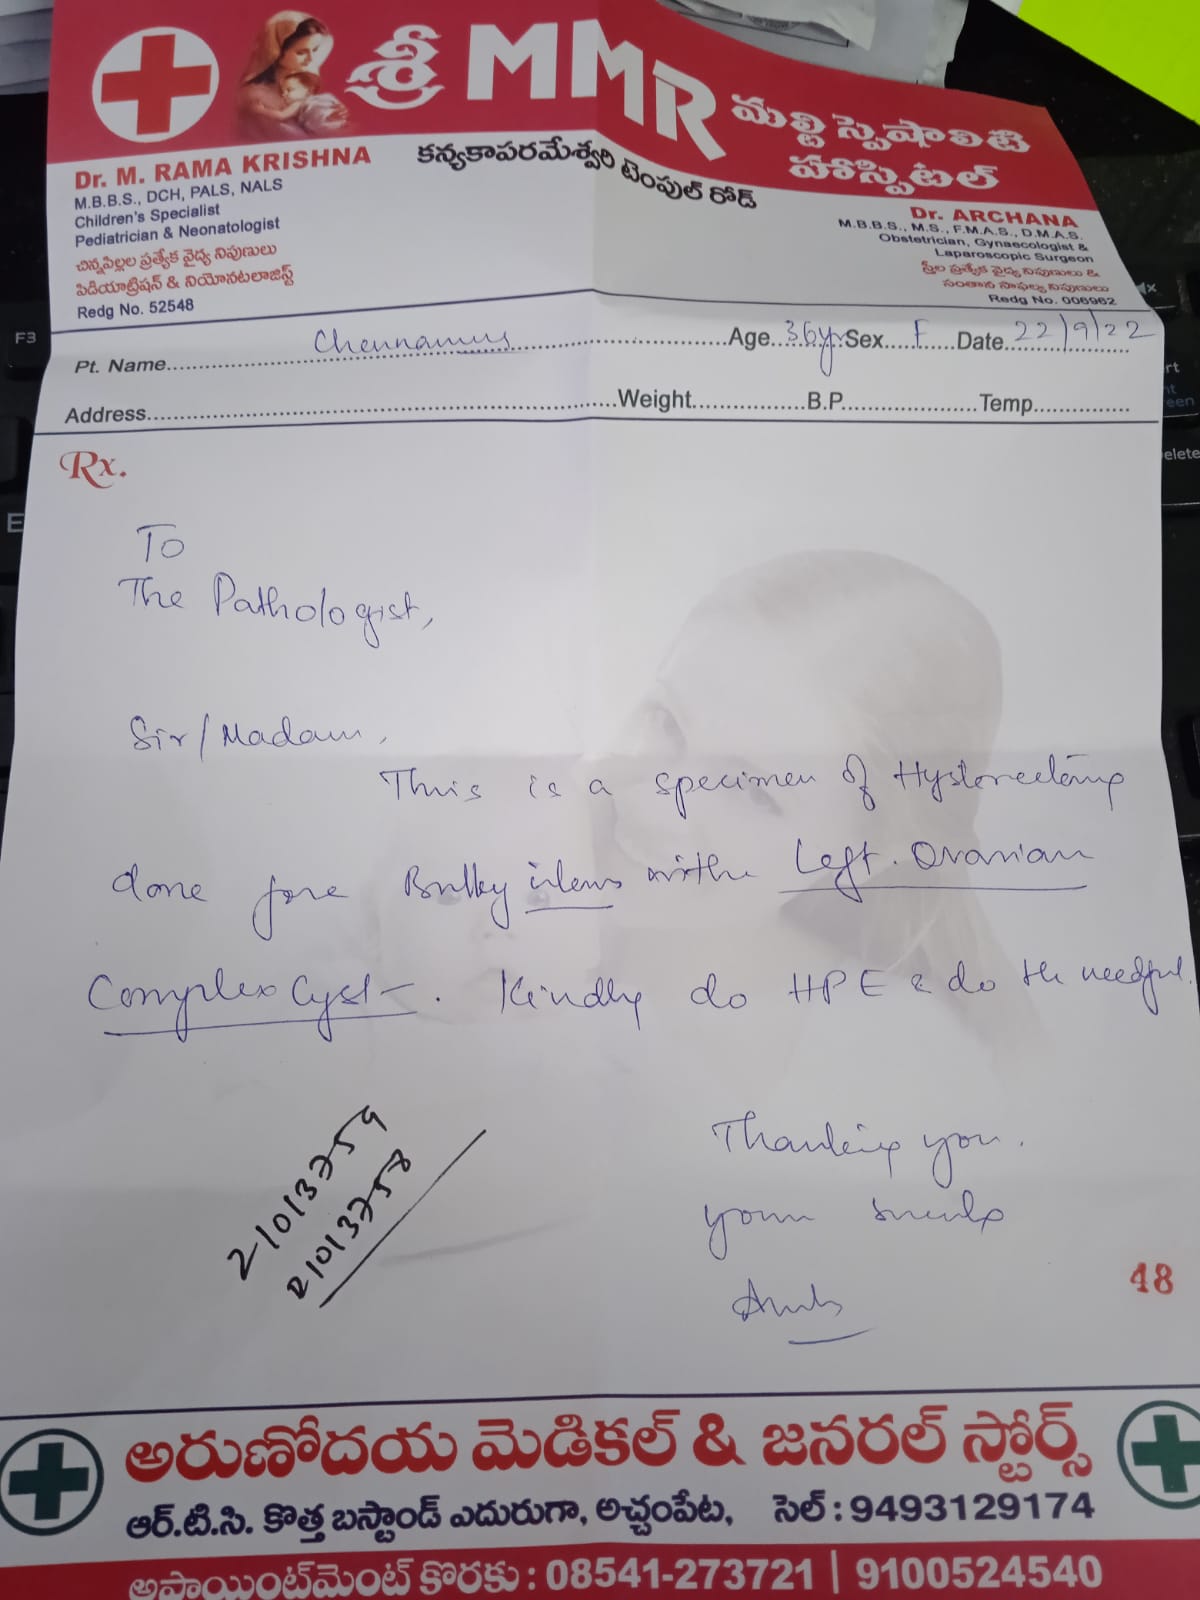 శ్రీ MMR మల్టి స్పెషాలిటి
హాస్పిటల్
కన్యకాపరమేశ్వరి టెంపుల్ రోడ్
Dr. M. RAMA KRISHNA
M.B.B.S., DCH, PALS, NALS
Children's Specialist
Pediatrician & Neonatologist
చిన్నపిల్లల ప్రత్యేక వైద్య నిపుణులు
పిడియాట్రిషన్ & నియోనటలాజిస్ట్
Redg No. 52548
Dr. ARCHANA
M.B.B.S., M.S., F.M.A.S., D.M.A.S.
Obstetrician, Gynaecologist &
Laparoscopic Surgeon
స్త్రీల ప్రత్యేక వైద్య నిపుణులు &
సంతాన సాఫల్య నిపుణులు
Redg No. 006962
Pt. Name Age 36yr Sex F Date 22/9/22
Address Weight B.P. Temp
Rx.
To
The Pathologist,
Sir/Madam,
This is a specimen of Hysterectomy
done fore Bulky with Left. Ovarian
Complex Cyst. Kindly do HPE & do the needful.
21013759
21013758
Thanking you.
48
అరుణోదయ మెడికల్ & జనరల్ స్టోర్స్
ఆర్.టి.సి. కొత్త బస్టాండ్ ఎదురుగా, అచ్చంపేట, సెల్ : 9493129174
అపాయింట్‌మెంట్ కొరకు : 08541-273721 | 9100524540
F3